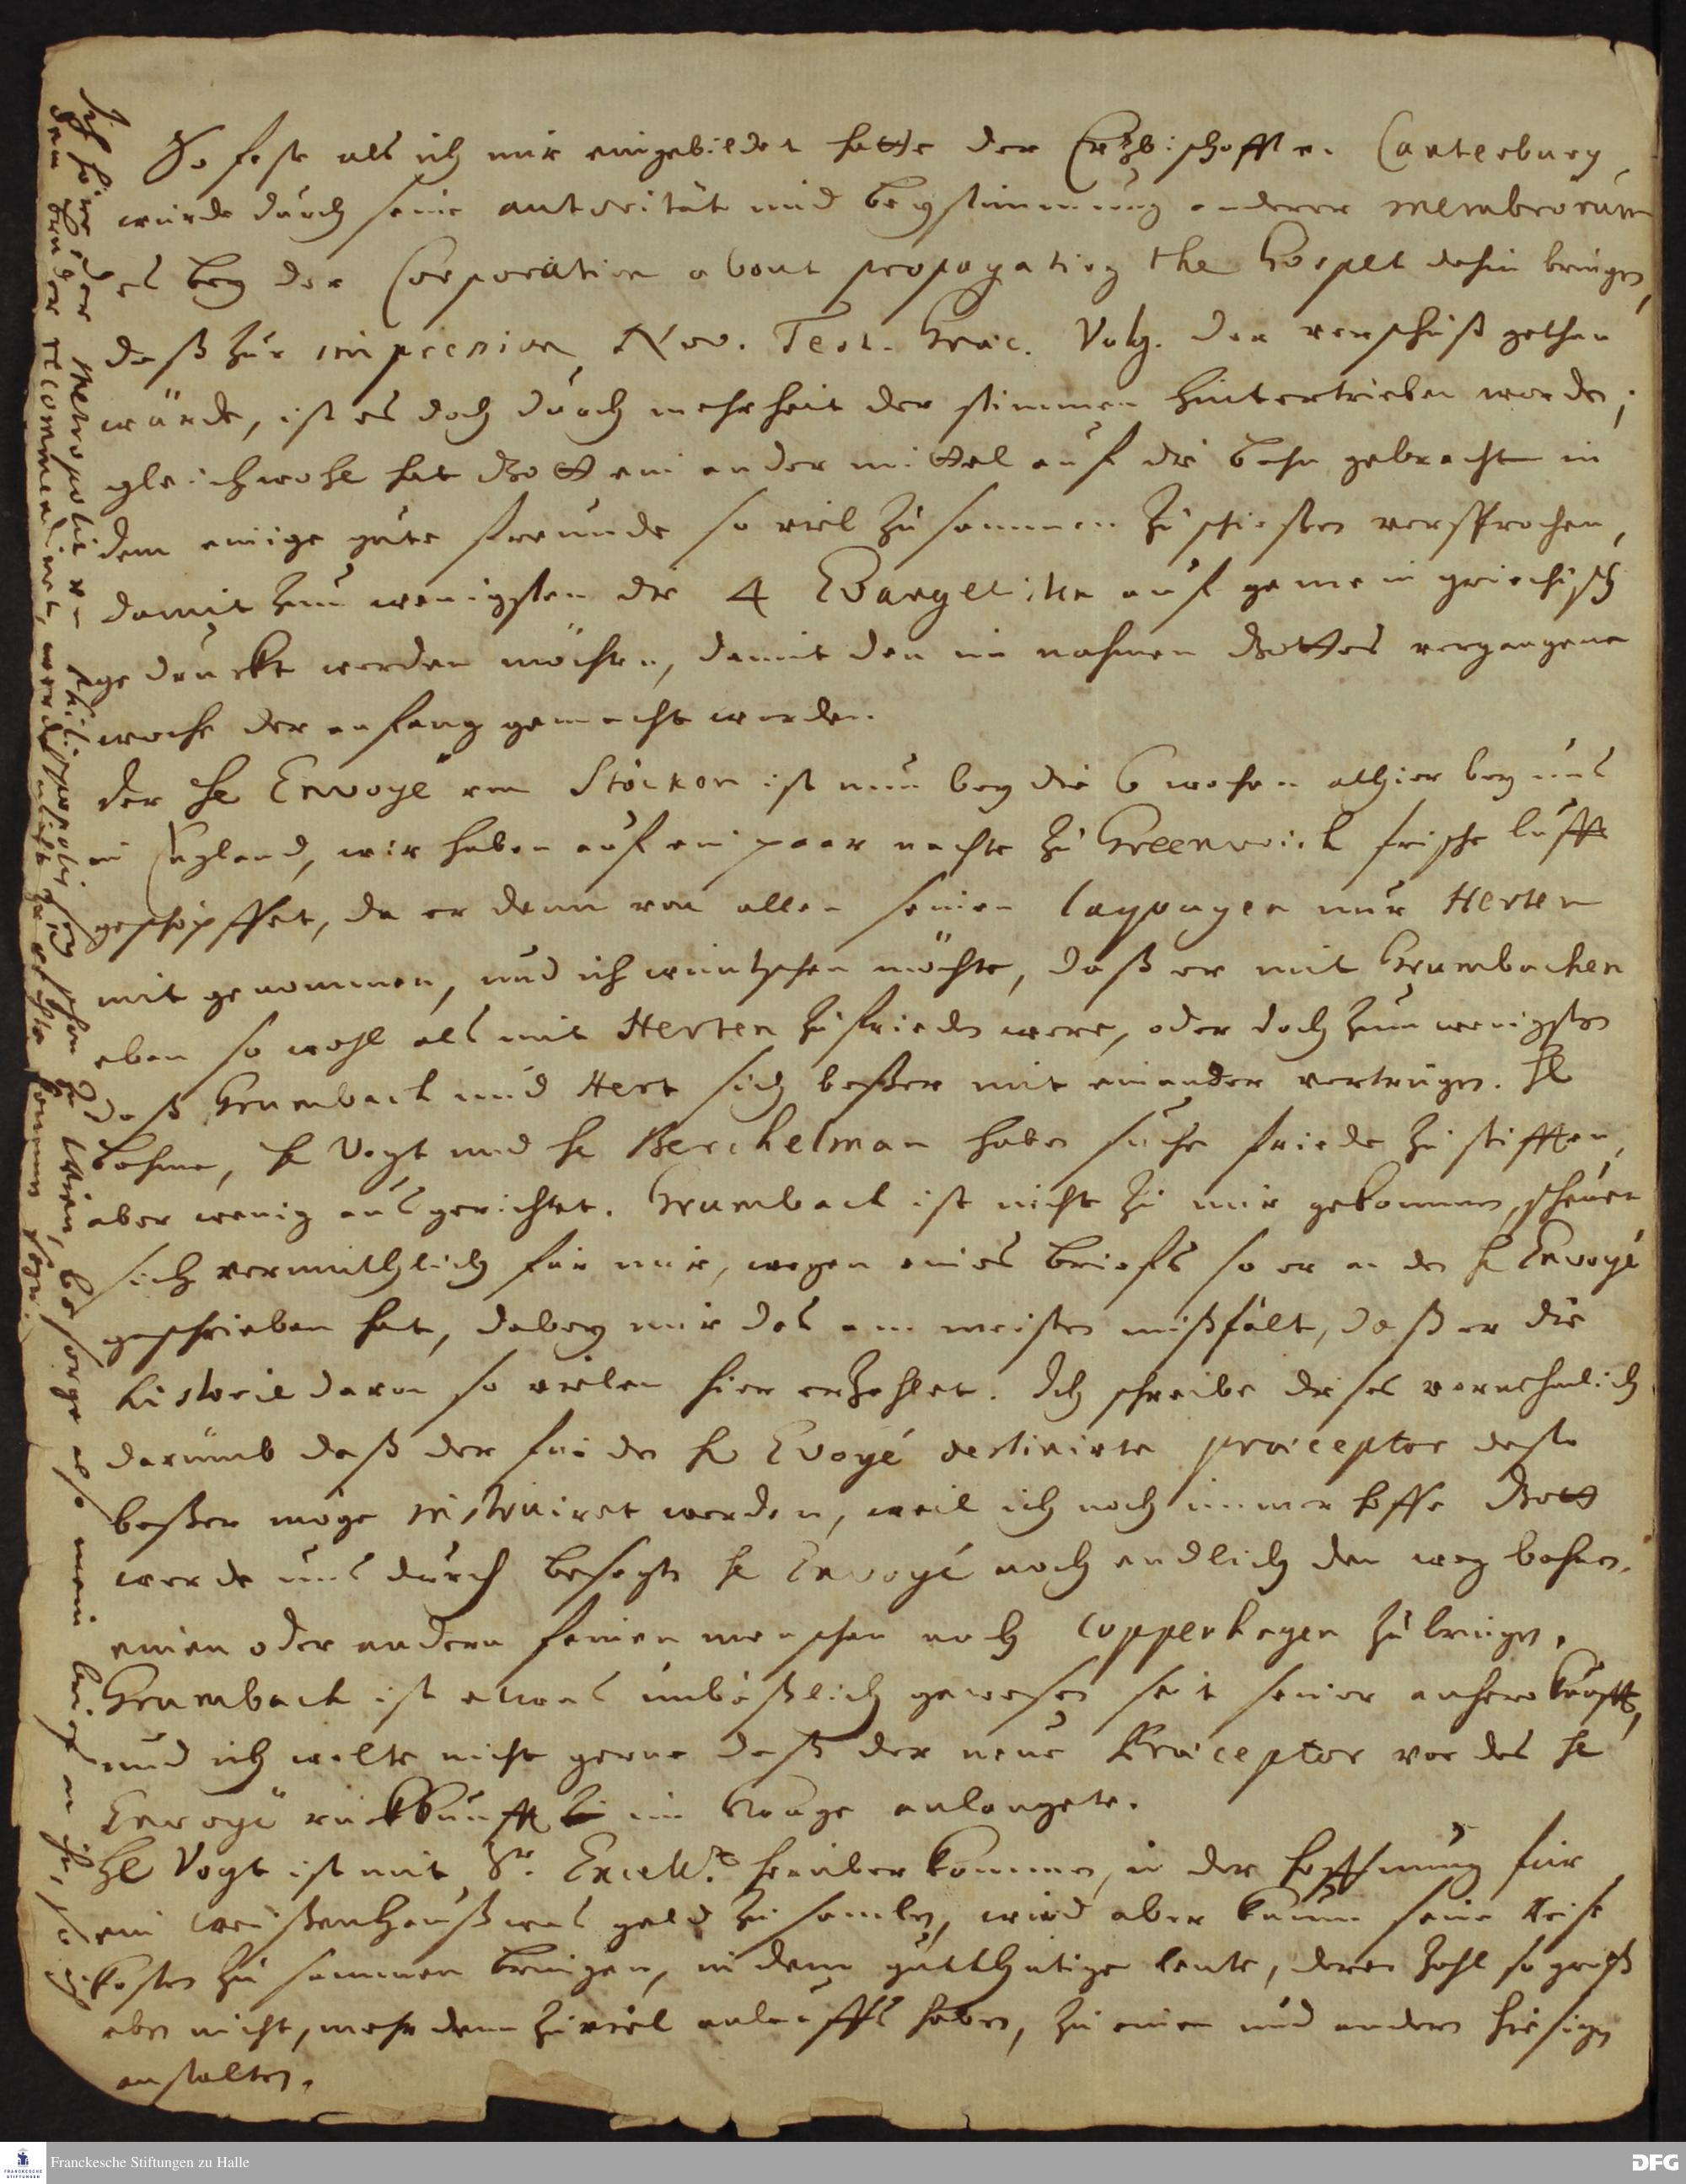 So feste als ich mir eingebildet hatte der Ertzbischoff v. Canterbury
würde durch seine autorität und beystimmung anderer membrorum
es bey der Corporation about propagating the Gospel dahin bringen,
daß zur impression Nov. Test. Graec. Vulg. der vorschuß gethan
würde, ist es doch durch mehrheit der stimmen hintertrieben worden;
gleichwohl hat Gott ein ander mittel auf die bahn gebracht in
dem einige gute freunde so viel zusammen zuschießen versprochen,
damit zum wenigsten die 4 Evangelisten auf gemein griechisch
gedruckt werden möchten, damit den im nahmen Gottes vergangene
woche der anfang gemacht worden.
der H Envoyé von Stöcken ist nun bey die 6 wochen alhier bey uns
in England, wir haben auf ein paar nachte zu Greenwich frische lufft
geschöpffet, da er denn von allen seinen laypagen nur Herten
mit genommen, und ich wüntschen möchte, daß er mit Grumbachen
eben so wohl als mit Herten zufrieden were, oder doch zum wenigsten
daß Grumbach und Hert sich beßer mit einander vertrügen. H
Bohme, H Vogt und H Berchelman haben suche friede zu stifften,
aber wenig ausgerichtet. Grumbach ist nicht zu mir gekommen, scheuet
sich vermuthlich für mir, wegen eines briefs so er an den H Envoyé
geschrieben hat, dabey mir das am meisten mißfält, daß er die
historie davon so vielen hier erzehlet. Ich schreibe dieses vornehmlich
darumb daß der für den H Evoyé destinirte praeceptor desto
beßer möge instruiret werden, weil ich noch immer hoffe Gott
werde uns durch besagten H Envoyé noch endlich den weg bahnen,
einen oder andern feinen menschen nach Coppenhagen zu bringen.
Grumbach ist etwas unbäßlich gewesen seit seiner anherokunfft,
und ich wolte nicht gerne daß der neue Praeceptor vor des H
Envoyé rückkunfft im Haage anlangete.
H Vogt ist mit Sr. Excell. herüber kommen, in der hoffnung für
ein weißenhauß was geld zu samlen, wird aber kaum seine reise
kosten zusammen bringen, in dem gutthätige leute, deren zahl so groß
eben nicht, mehr denn zuviel anlauffs haben, zu einen und andern hiesigen
anstalten.
Ich höre, der Metropolit von Philippopolis sey schon zu Wien, besorge also mein brief an ihn, so ich
dem bruder recommendiret, werde nicht zu rechte kommen seyn.
Franckesche Stiftungen zu Halle
DFG